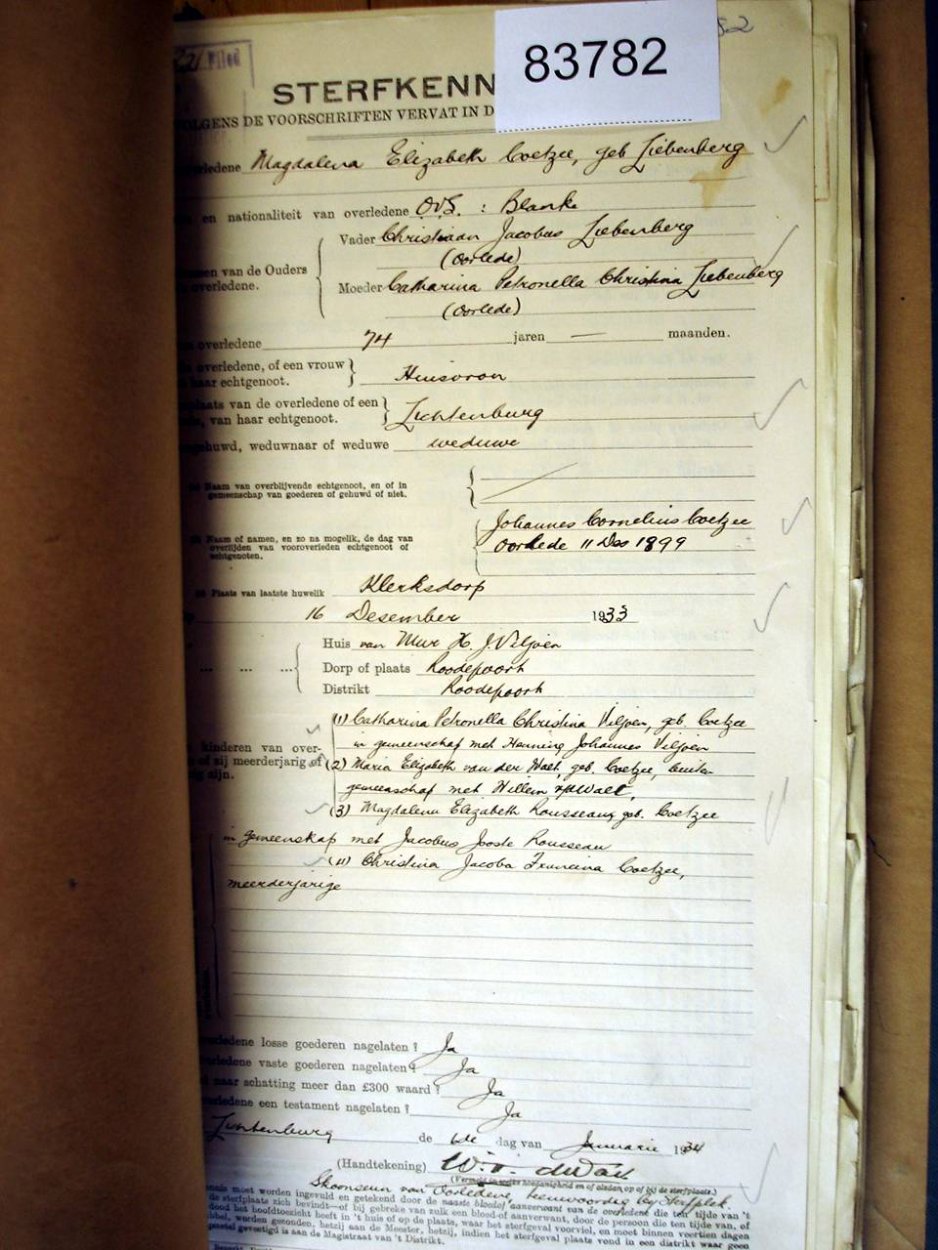 Filed
83782
STERFKENN
OLGENS DE VOORSCHRIFTEN VERVAT IN D
rledene Magdalena Elizabeth Coetzee, geb Liebenberg
en nationaliteit van overledene O.V.S. : Blanke
Vader Christiaan Jacobus Liebenberg
(Oorlede)
men van de Ouders
overledene.
Moeder Catharina Petronella Christina Liebenberg
(Oorlede)
overledene 74 jaren — maanden.
overledene, of een vrouw
haar echtgenoot. Huisvrou
plaats van de overledene of een
van haar echtgenoot. Lichtenburg
gehuwd, weduwnaar of weduwe weduwe
Naam van overblijvende echtgenoot, en of in
gemeenschap van goederen of gehuwd of niet.
Johannes Cornelius Coetzee
Naam of namen, en zo na mogelik, de dag van
overlijden van vooroverleden echtgenoot of
echtgenoten.
Oorlede 11 Des 1899
Plaats van laatste huwelik Klerksdorp
16 Desember 1933
Huis van Mnr H. J. Viljoen
Dorp of plaats Roodepoort
Distrikt Roodepoort
(1) Catharina Petronella Christina Viljoen, geb Coetzee
in gemeenschaf met Henning Johannes Viljoen
kinderen van over-
of zij meerderjarig of
zijn.
(2) Maria Elizabeth van der Walt, geb. Coetzee, buiten
gemeenschaf met Willem vd Walt,
(3) Magdalena Elizabeth Rousseau geb. Coetzee
in gemeenskap met Jacobus Jooste Rousseau
(4) Christina Jacoba Francina Coetzee,
meerderjarige
overledene losse goederen nagelaten? Ja
overledene vaste goederen nagelaten? Ja
naar schatting meer dan £300 waard? Ja
overledene een testament nagelaten? Ja
Lichtenburg de 6de dag van Januarie 1934
(Handtekening)
Skoonseun van Oorledene, teenwoordig by sterfplek.
moet worden ingevuld en getekend door de naaste bloedaanverwant van de overledene die ten tijde van 't
de sterfplaats zich bevindt—of bij gebreke van zulk een bloed-of aanverwant, door de persoon die ten tijde van, of
dood het hoofdtoezicht heeft in 't huis of op de plaats, waar het sterfgeval voorviel, en moet binnen veertien dagen
worden gezonden, hetzij aan de Meester, hetzij, indien het sterfgeval plaats vond in een distrikt waar geen
gevestigd is aan de Magistraat van 't Distrikt.